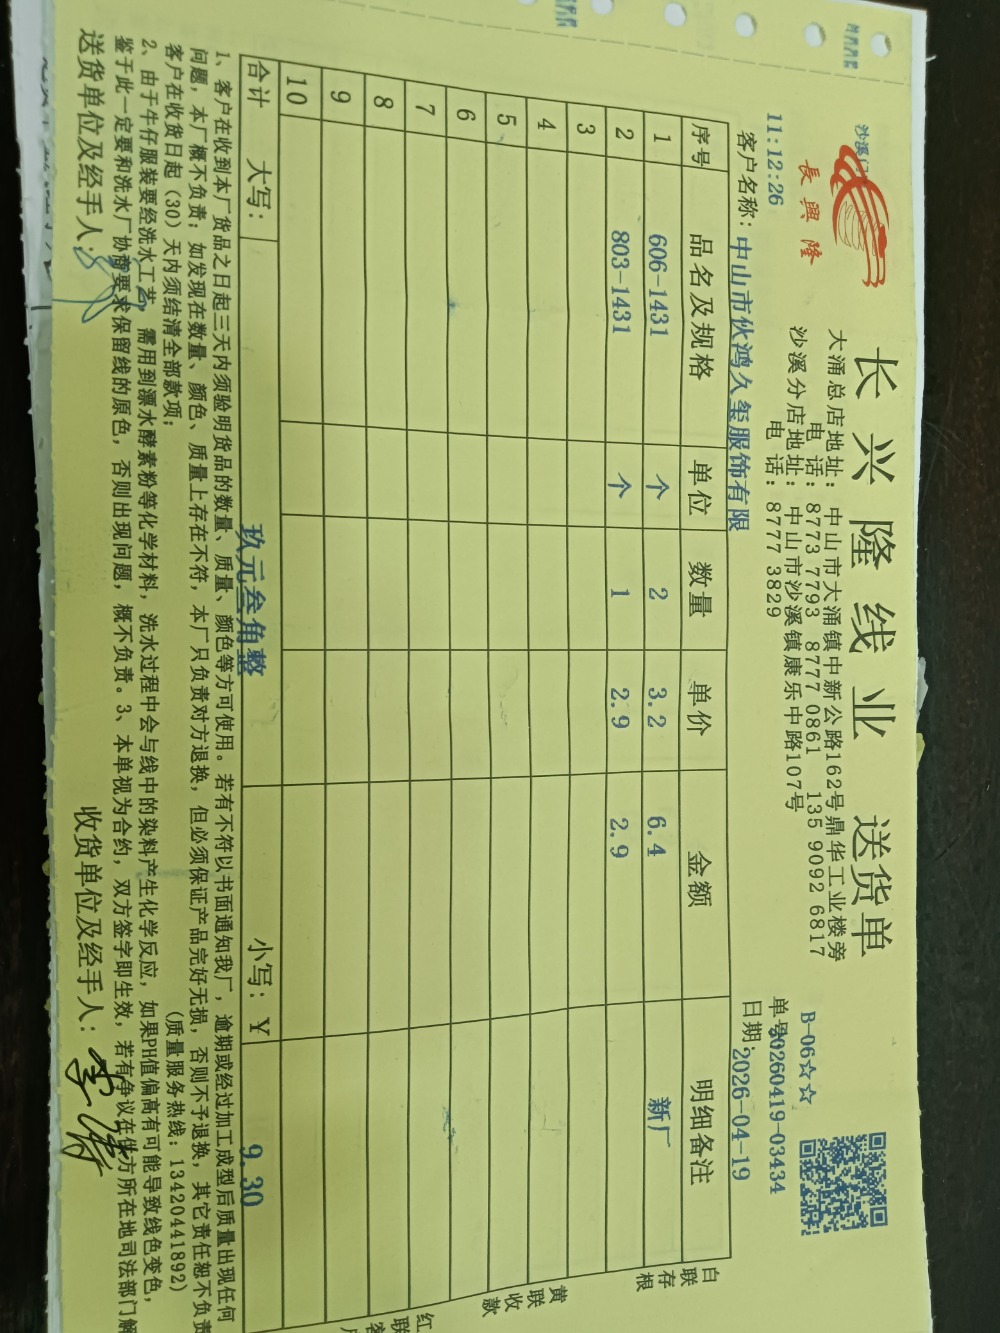 長興隆
长兴隆线业 送货单
大涌总店地址：中山市大涌镇中新公路162号鼎华工业楼旁
电 话：8773 7793 8777 0861 135 9092 6817
沙溪分店地址：中山市沙溪镇康乐中路107号
电 话：8777 3829
B-06☆☆
单号20260419-03434
11:12:26
日期：2026-04-19
客户名称：中山市伙鸿久玺服饰有限
序号 品名及规格 单位 数量 单价 金额 明细备注
1 606-1431 个 2 3.2 6.4 新厂
2 803-1431 个 1 2.9 2.9
3
4
5
6
7
8
9
10
合计 大写：玖元叁角整 小写：¥ 9.30
白联存根
黄联收款
红联客
1、客户在收到本厂货品之日起三天内须验明货品的数量、质量、颜色等方可使用。若有不符以书面通知我厂，逾期或经过加工成型后质量出现任何
问题，本厂概不负责；如发现在数量、颜色、质量上存在不符，本厂只负责对方退换，但必须保证产品完好无损，否则不予退换，其它责任恕不负责
客户在收货日起（30）天内须结清全部款项； （质量服务热线：13420441892）
2、由于牛仔服装要经洗水工艺，需用到漂水酵素粉等化学材料，洗水过程中会与线中的染料产生化学反应，如果PH值偏高有可能导致线色变色，
鉴于此一定要和洗水厂协商要求保留线的原色，否则出现问题，概不负责。3、本单视为合约，双方签字即生效，若有争议在供方所在地司法部门解
送货单位及经手人： 收货单位及经手人：